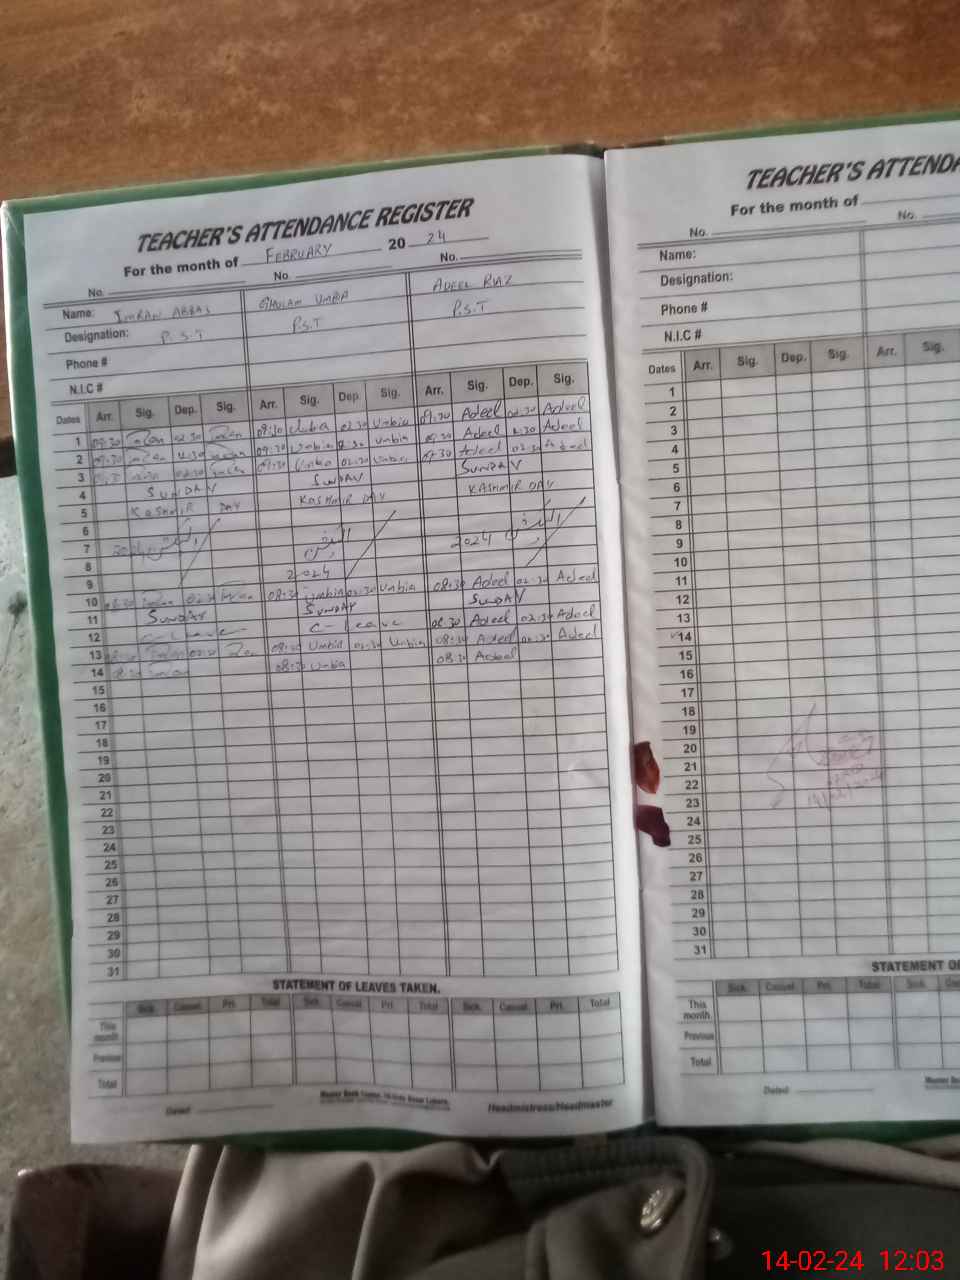 TEACHER'S ATTENDANCE REGISTER
For the month of FEBRUARY 20 24
No. No. No.
Name: IMRAN ABBAS GHULAM UMBIA ADEEL RIAZ
Designation: P.S.T P.S.T P.S.T
Phone #
N.I.C #
Dates Arr. Sig. Dep. Sig. Arr. Sig. Dep. Sig. Arr. Sig. Dep. Sig.
1 09:30 02:30 09:30 02:30 Umbia 09:30 Adeel 02:30 Adeel
2 09:30 09:30 Umbia Umbia 09:30 Adeel Adeel
3 09:30 Umbia 02:30 Umbia 09:30 Adeel 02:30 Adeel
4 SUNDAY SUNDAY SUNDAY
5 KASHMIR DAY KASHMIR DAY KASHMIR DAY
6
7 2024 2024
8 2024
9
10 08:30 02:30 08:30 Umbia 02:30 Umbia 08:30 Adeel 02:30 Adeel
11 SUNDAY SUNDAY SUNDAY
12 C-Leave C-Leave 08:30 Adeel 02:30 Adeel
13 08:30 02:30 08:30 Umbia 02:30 Umbia 08:30 Adeel 02:30 Adeel
14 08:30 08:30 Umbia 08:30 Adeel
15
16
17
18
19
20
21
22
23
24
25
26
27
28
29
30
31
STATEMENT OF LEAVES TAKEN.
Sick. Casual Pri. Total Sick. Casual Pri. Total Sick. Casual Pri. Total
This month
Previous
Total
Dated
Headmistress/Headmaster
TEACHER'S ATTENDA
For the month of
No. No.
Name:
Designation:
Phone #
N.I.C #
Dates Arr. Sig. Dep. Sig. Arr. Sig.
1
2
3
4
5
6
7
8
9
10
11
12
13
14
15
16
17
18
19
20
21
22
23
24
25
26
27
28
29
30
31
STATEMENT O
Sick. Casual Pri. Total Sick.
This month
Previous
Total
Dated
14-02-24 12:03